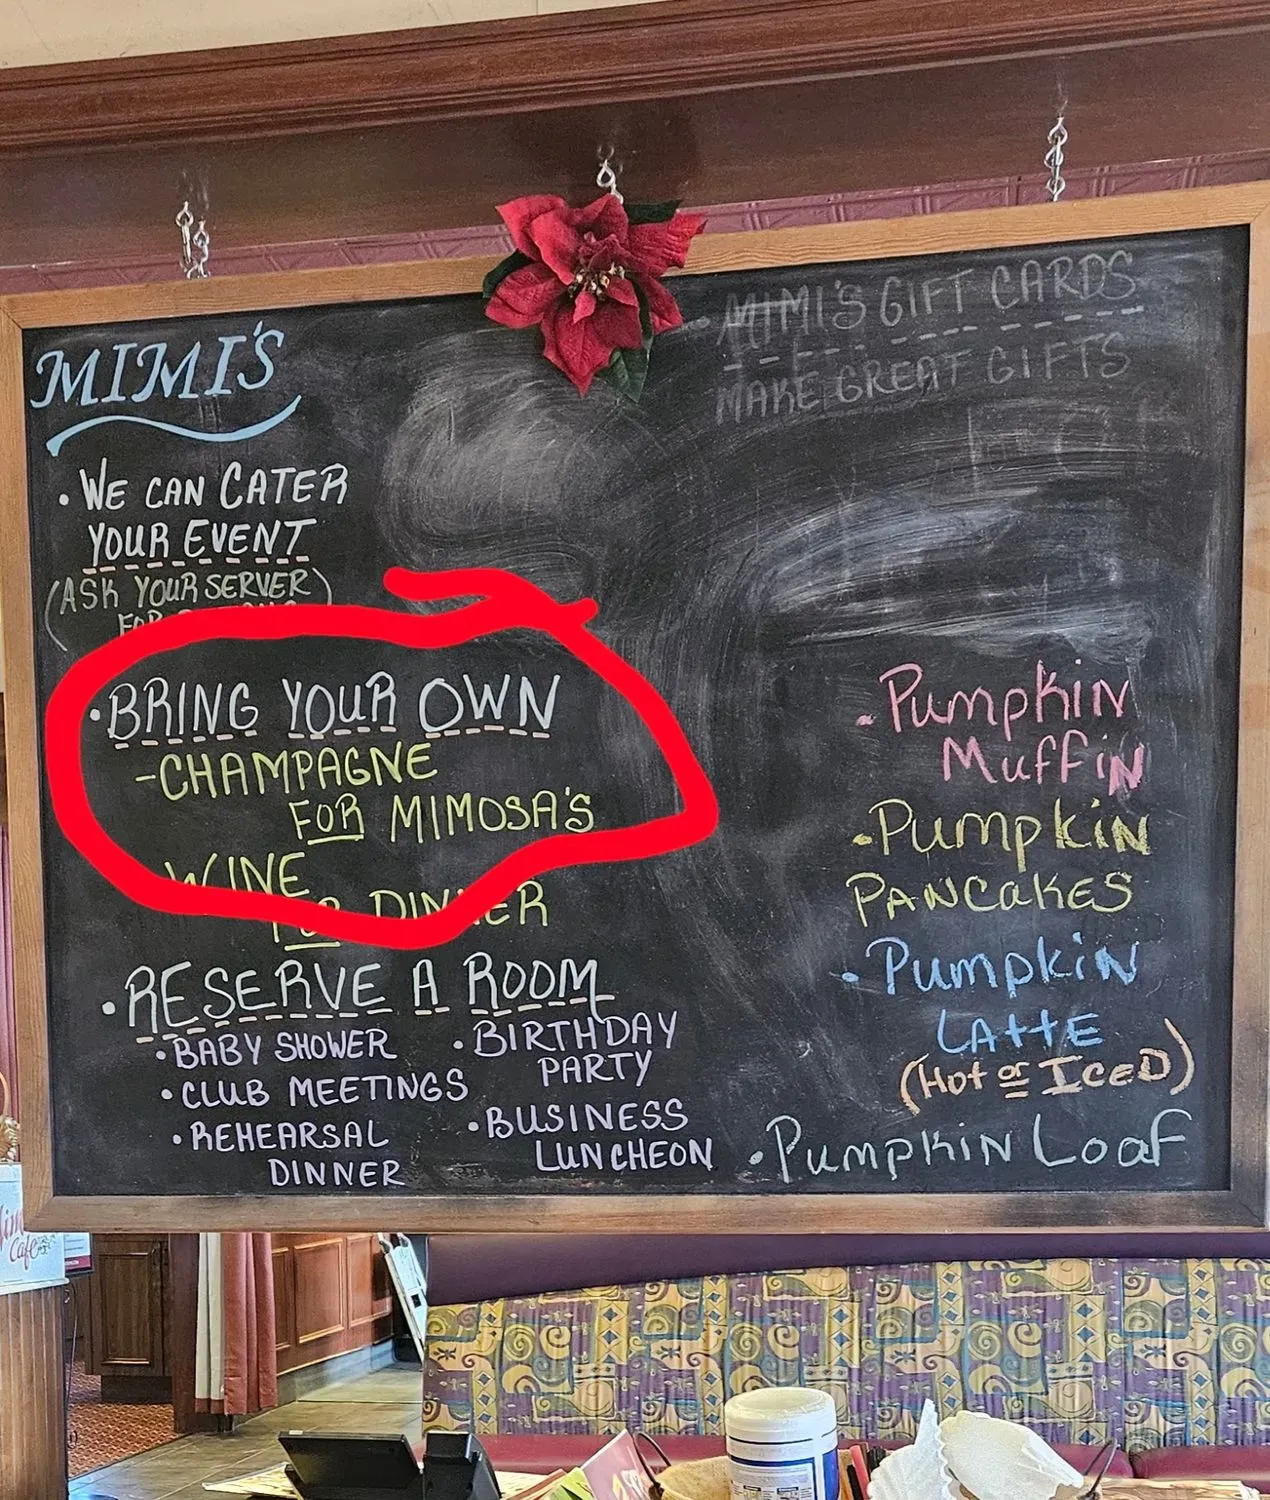 MIMI'S
• WE CAN CATER
YOUR EVENT
(ASK YOUR SERVER
FOR
• BRING YOUR OWN
-CHAMPAGNE
FOR MIMOSA'S
WINE
FOR DINNER
• RESERVE A ROOM
• BABY SHOWER
• CLUB MEETINGS
• REHEARSAL
DINNER
• BIRTHDAY
PARTY
• BUSINESS
LUNCHEON
MIMI'S GIFT CARDS
MAKE GREAT GIFTS
• PumpkiN
MuffiN
• PumpkiN
PANcaKES
• PumpkiN
LAttE
(Hot or IcED)
• PumpkiN Loaf
Cafe